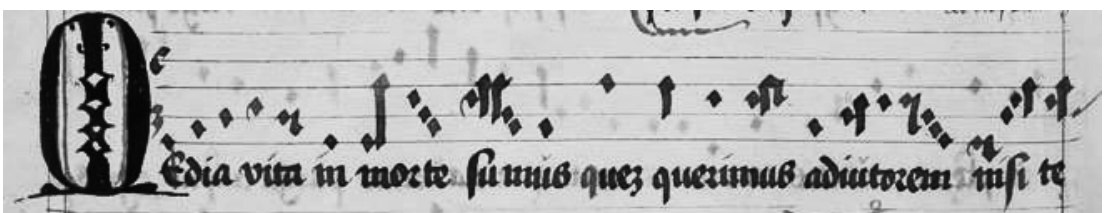 Media vita in morte sumus quez querimus adiutorem nisi te